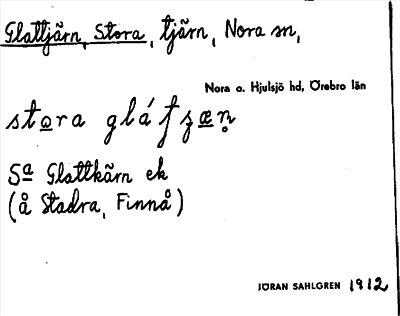 Glattjärn, Stora, tjärn, Nora sn,
Nora o. Hjulsjö hd, Örebro län
Sa Glattkärn ek
(å Stadra, Finnå)
JÖRAN SAHLGREN 1912